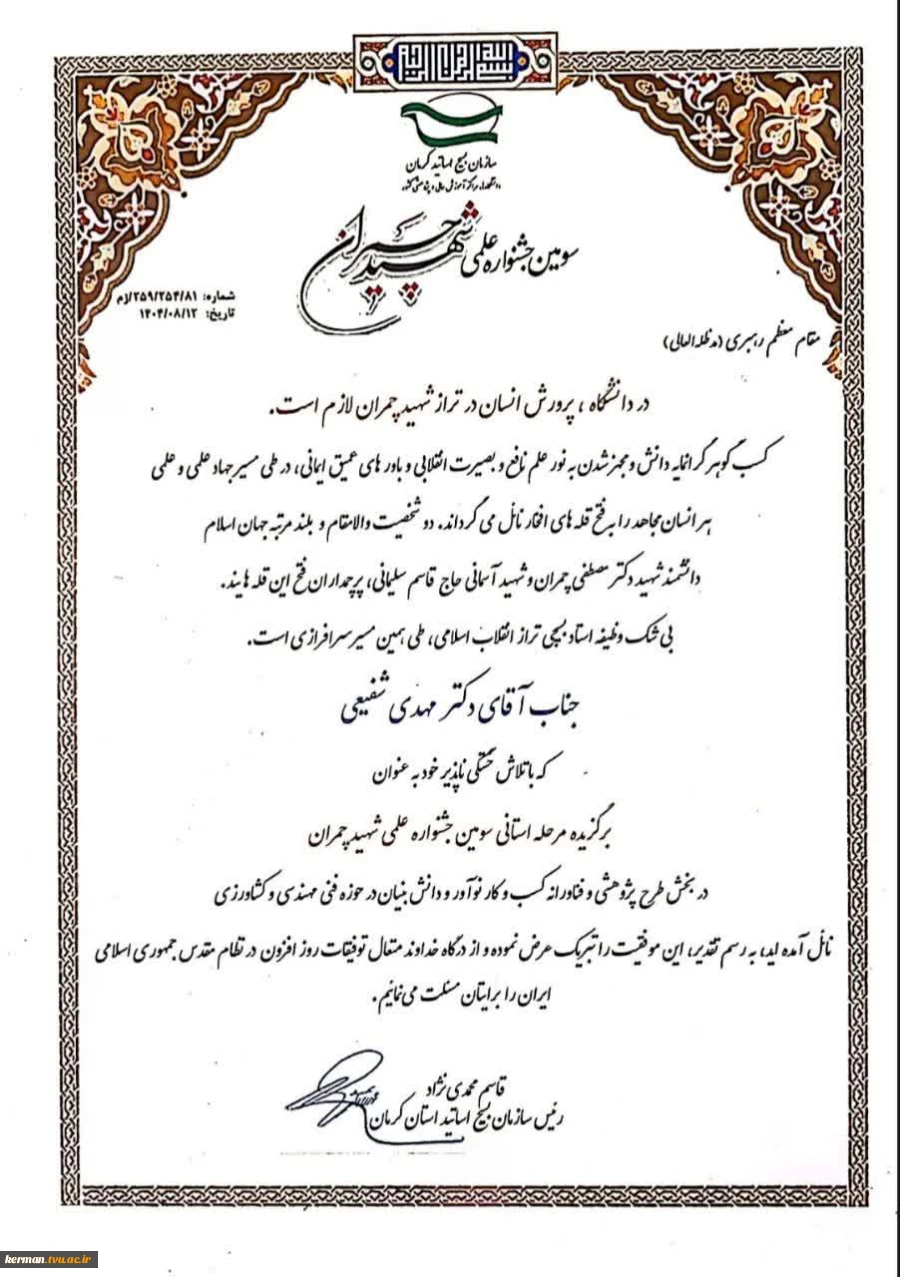 بسم الله الرحمن الرحیم
سازمان بسیج اساتید کرمان
سومین جشنواره علمی شهید چمران
شماره: ۲۵۹/۲۵۴/۸۱/زم
تاریخ: ۱۴۰۴/۰۸/۱۲
مقام معظم رهبری (مدظله العالی)
در دانشگاه ، پرورش انسان در تراز شهید چمران لازم است.
کسب گوهر گرانمایه دانش و مجهز شدن به نور علم نافع و بصیرت انقلابی و باور های عمیق ایمانی، در طی مسیر جهاد علمی و علمی
هر انسان مجاهد را به فتح قله های افتخار نائل می گرداند. دو شخصیت والامقام و بلند مرتبه جهان اسلام
دانشمند شهید دکتر مصطفی چمران و شهید آسمانی حاج قاسم سلیمانی، پرچمداران فتح این قله هایند.
بی شک وظیفه استاد بسیجی تراز انقلاب اسلامی، طی همین مسیر سرافرازی است.
جناب آقای دکتر مهدی شفیعی
که با تلاش خستگی ناپذیر خود به عنوان
برگزیده مرحله استانی سومین جشنواره علمی شهید چمران
در بخش طرح پژوهشی و فناورانه کسب و کار نوآور و دانش بنیان در حوزه فنی مهندسی و کشاورزی
نائل آمده اید، به رسم تقدیر، این موفقیت را تبریک عرض نموده و از درگاه خداوند متعال توفیقات روز افزون در نظام مقدس جمهوری اسلامی
ایران را برایتان مسئلت می نمائیم.
قاسم محمدی نژاد
رئیس سازمان بسیج اساتید استان کرمان
kerman.tvu.ac.ir